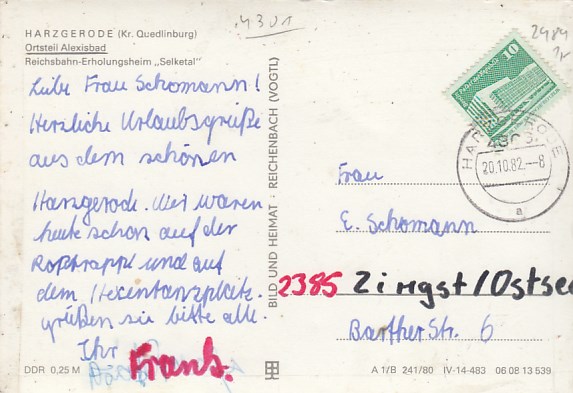 4301
2484
HARZGERODE (Kr. Quedlinburg)
Ortsteil Alexisbad
Reichsbahn-Erholungsheim „Selketal"
Liebe Frau Schomann!
Herzliche Urlaubsgrüße
aus dem schönen
Harzgerode. Wir waren
heute schon auf der
Roßtrappe und auf
dem Hexentanzplatz.
grüßen sie bitte alle.
Ihr Frank.
DDR 0,25 M
BILD UND HEIMAT · REICHENBACH (VOGTL)
10
HARZGERODE
4306
20.10.82.–8
a
Frau
E. Schomann
2385 Zingst/Ostsee
Barther Str. 6
A 1/B 241/80 IV-14-483 06 08 13 539